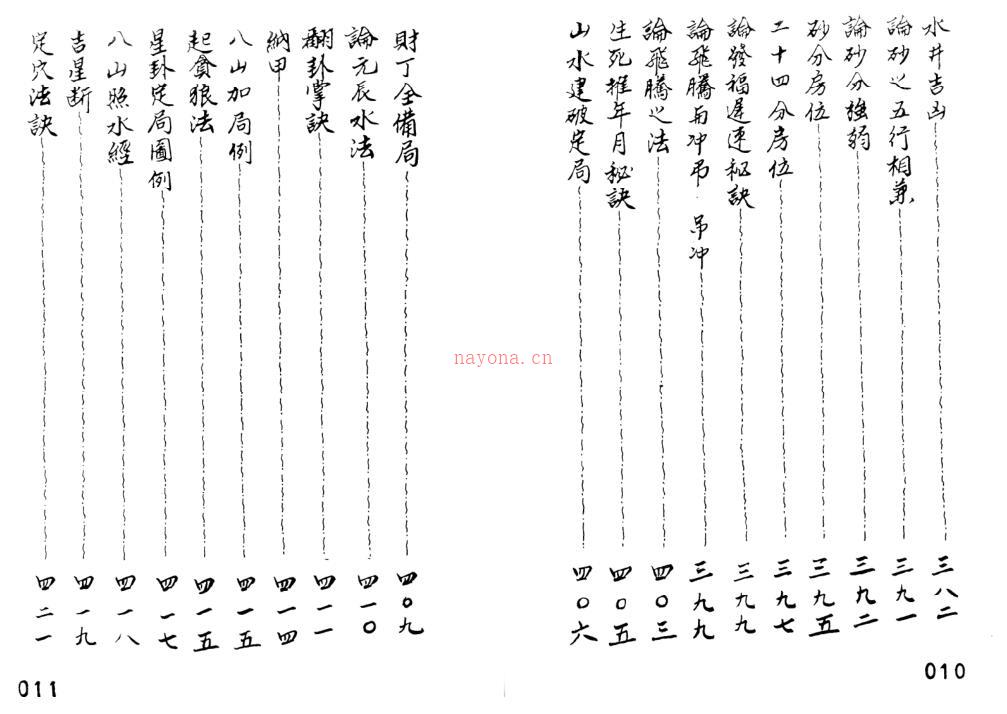 水井吉凶 三八二
論砂之五行相兼 三九一
論砂分強弱 三九二
砂分房位 三九五
二十四分房位 三九七
論發福遲速秘訣 三九九
論飛騰與冲弔 吊冲 三九九
論飛騰之法 四〇三
生死推年月秘訣 四〇五
山水建破定局 四〇六
010
財丁全備局 四〇九
論元辰水法 四一〇
翻卦掌訣 四一一
納甲 四一四
八山加局例 四一五
起貪狼法 四一五
星卦定局圖例 四一七
八山照水經 四一八
吉星斷 四一九
定穴法訣 四二一
011
nayona.cn